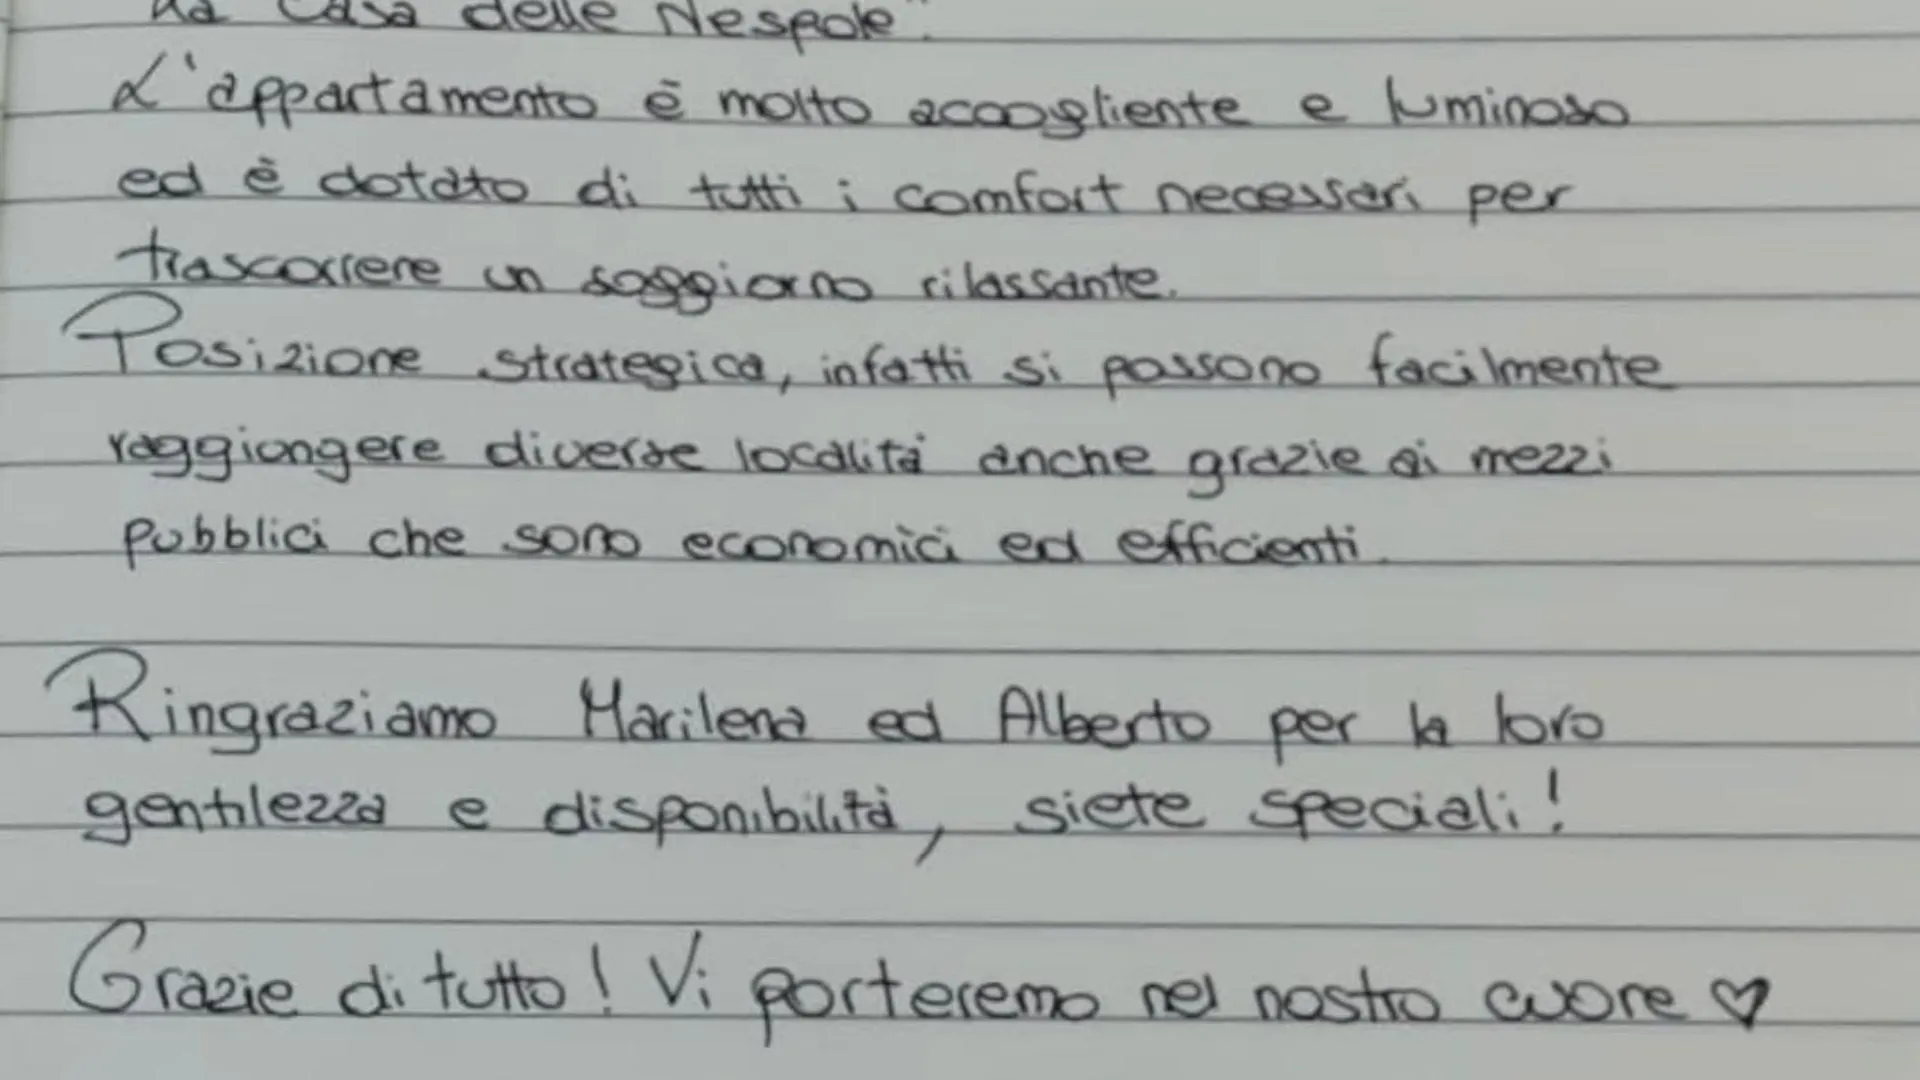 La Casa delle Nespole".
L'appartamento è molto accogliente e luminoso
ed è dotato di tutti i comfort necessari per
trascorrere un soggiorno rilassante.
Posizione strategica, infatti si possono facilmente
raggiungere diverse località anche grazie ai mezzi
pubblici che sono economici ed efficienti.
Ringraziamo Marilena ed Alberto per la loro
gentilezza e disponibilità, siete speciali!
Grazie di tutto! Vi porteremo nel nostro cuore ♡